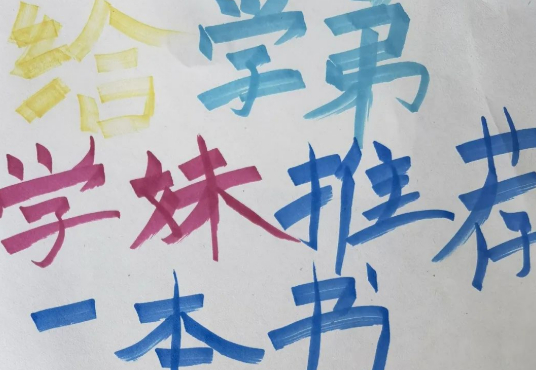 给学弟
学妹推荐
一本书